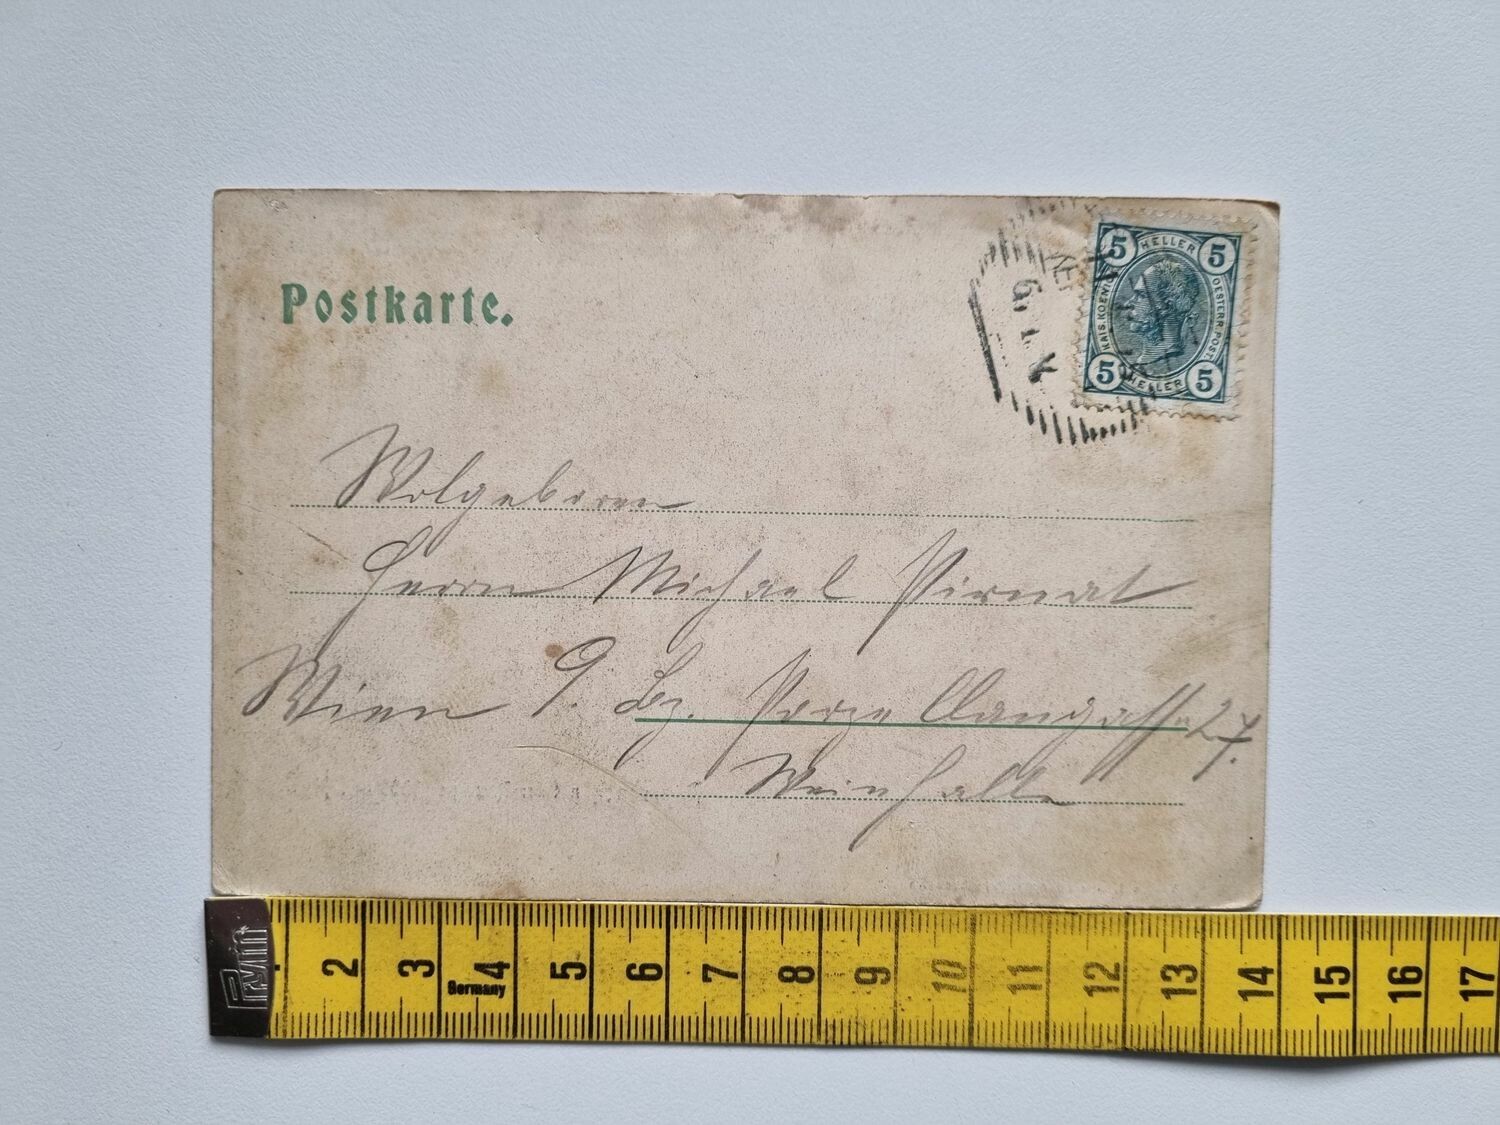 Postkarte.
5 HELLER 5
KAIS. KOENIGL. OESTERR. POST.
5 HELLER 5
Wolgeboren
Herrn Michael Pirnat
Wien 9. Bz. Porzellangasse 27.
Weinhalle
Prym
2 3 4 5 6 7 8 9 10 11 12 13 14 15 16 17
Germany